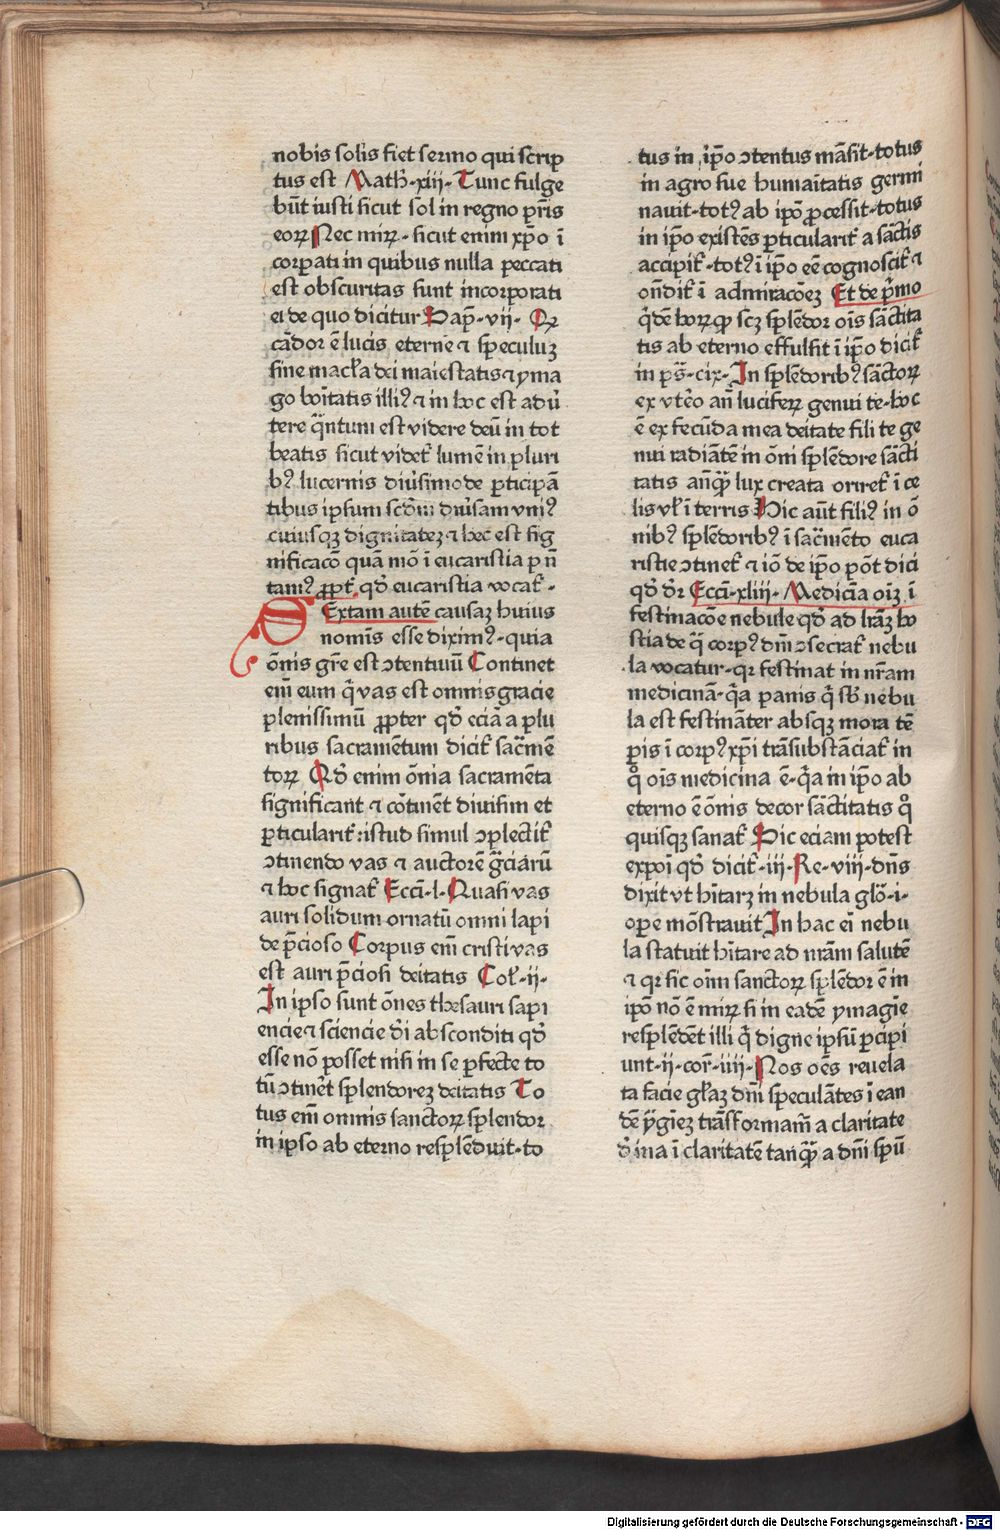 nobis solis fiet sermo qui scrip
tus est Math̄·xiii· Tunc fulge
būt iusti sicut sol in regno pr̄is
eoꝝ Nec miꝝ· sicut enim xp̄o ī
corꝑati in quibus nulla peccati
est obscuritas sunt incorporati
ei de quo dicitur Sap̄·vii· Qꝛ
cādor ē lucis eterne ⁊ speculuꝫ
sine macl̄a dei maiestatis ⁊ yma
go boītatis illiꝰ ⁊ in hoc est adū
tere q̄ntum est videre deū in tot
beatis sicut videt᷑ lumē in pluri
bꝰ lucernis diūsimode ꝑticipā
tibus ipsum scd̄m diūsam vniꝰ
cuiusqꝫ dignitateꝫ ⁊ hec est sig
nificacō quā mō ī eucaristia p̄ n̄
tamꝰ ꝓpt᷑ qd̄ eucaristia vocat᷑·
SExtam autē causaꝫ huius
nomīs esse diximꝰ· quia
ōnis gr̄e est ꝯtentiuū Continet
em̄ eum q̄ vas est omnis gracie
plenissimū ꝓpter qd̄ eciā a plu
ribus sacramētum dicit᷑ sac̄mē
toꝝ Qd̄ enim ōnia sacramēta
significant ⁊ cōtinēt diuisim et
ꝑticularit᷑: istud simul ꝯplectit᷑
ꝯtinendo vas ⁊ auctorē gr̄ciarū
⁊ hoc signat᷑ Ecci̅·l· Quasi vas
auri solidum ornatū omni lapi
de p̄cioso Corpus em̄ cristi vas
est auri p̄ciosi deitatis Col̄·ii·
In ipso sunt ōnes thesauri sapi
encie ⁊ sciencie d̄i absconditi qd̄
esse nō posset nisi in se ꝑfecte to
tū ꝯtinēt splendoreꝫ deitatis To
tus em̄ omnis sanctoꝝ splendor
in ipso ab eterno resplēduit· to
tus in ip̄o ꝯtentus māsit· totus
in agro sue humaītatis germi
nauit· totꝰ ab ip̄o ꝓcessit· totus
in ip̄o existēs ꝑticularit᷑ a sāctis
accipit᷑· totꝰ ī ip̄o eē cognoscit᷑ ⁊
on̄dit᷑ ī admiracōeꝫ Et de p̄mo
q̄dē hoꝝ ꝙ scꝫ splēdor oīs sāctita
tis ab eterno effulsit ī ip̄o dicit᷑
in ps̄·cix· In splēdoribꝰ sāctoꝝ
ex vte̅o an̄ luciferꝝ genui te· hoc
ē ex fecūda mea deitate fili te ge
nui radiātē in ōni splēdore sācti
tatis anq̄ꝫ lux creata oriret᷑ ī ce
lis vl̄ ī terris Hic aūt filiꝰ in ō
nibꝰ splēdoribꝰ ī sac̄mēto euca
ristie ꝯtinet᷑ ⁊ iō de ip̄o pōt dici
qd̄ dr̄ Ecci̅·xliii· Medicīa oīꝫ ī
festinacōe nebule qd̄ ad lr̄aꝫ ho
stia de q̄ corpꝰ dn̄i ꝯsecrat᷑ nebu
la vocatur· qꝛ festinat in nr̄am
medicinā· q̄a panis q̄ sb̄ nebu
la est festināter absqꝫ mora tē
ꝑis ī corpꝰ xp̄i trāsubstāciat᷑ in
qͦ oīs medicina ē· q̄a in ip̄o ab
eterno ē ōnis decor sāctitatis qͦ
quisqꝫ sanat᷑ Sic eciam potest
expoī qd̄ dicit᷑·iii·Re·viii·dn̄s
dixit vt hītarꝫ in nebula glō·i·
oꝑe mōstrauit In hac ei̅ nebu
la statuit hītare ad nr̄am salutē
⁊ qꝛ sic oīm sanctoꝝ splēdor ē in
ip̄o nō ē miꝝ si in eadē ymagīe
resplēdēt illi q̄ digne ipsū ꝑcipi
unt·ii·cor̄·iiii· Nos oēs reuela
ta facie gl̄aꝫ dn̄i speculātes ī ean
dē ẏgīeꝫ trāsformam̄ a claritate
d̄ina ī claritatē tanq̄ꝫ a dn̄i spū
Digitalisierung gefördert durch die Deutsche Forschungsgemeinschaft - DFG